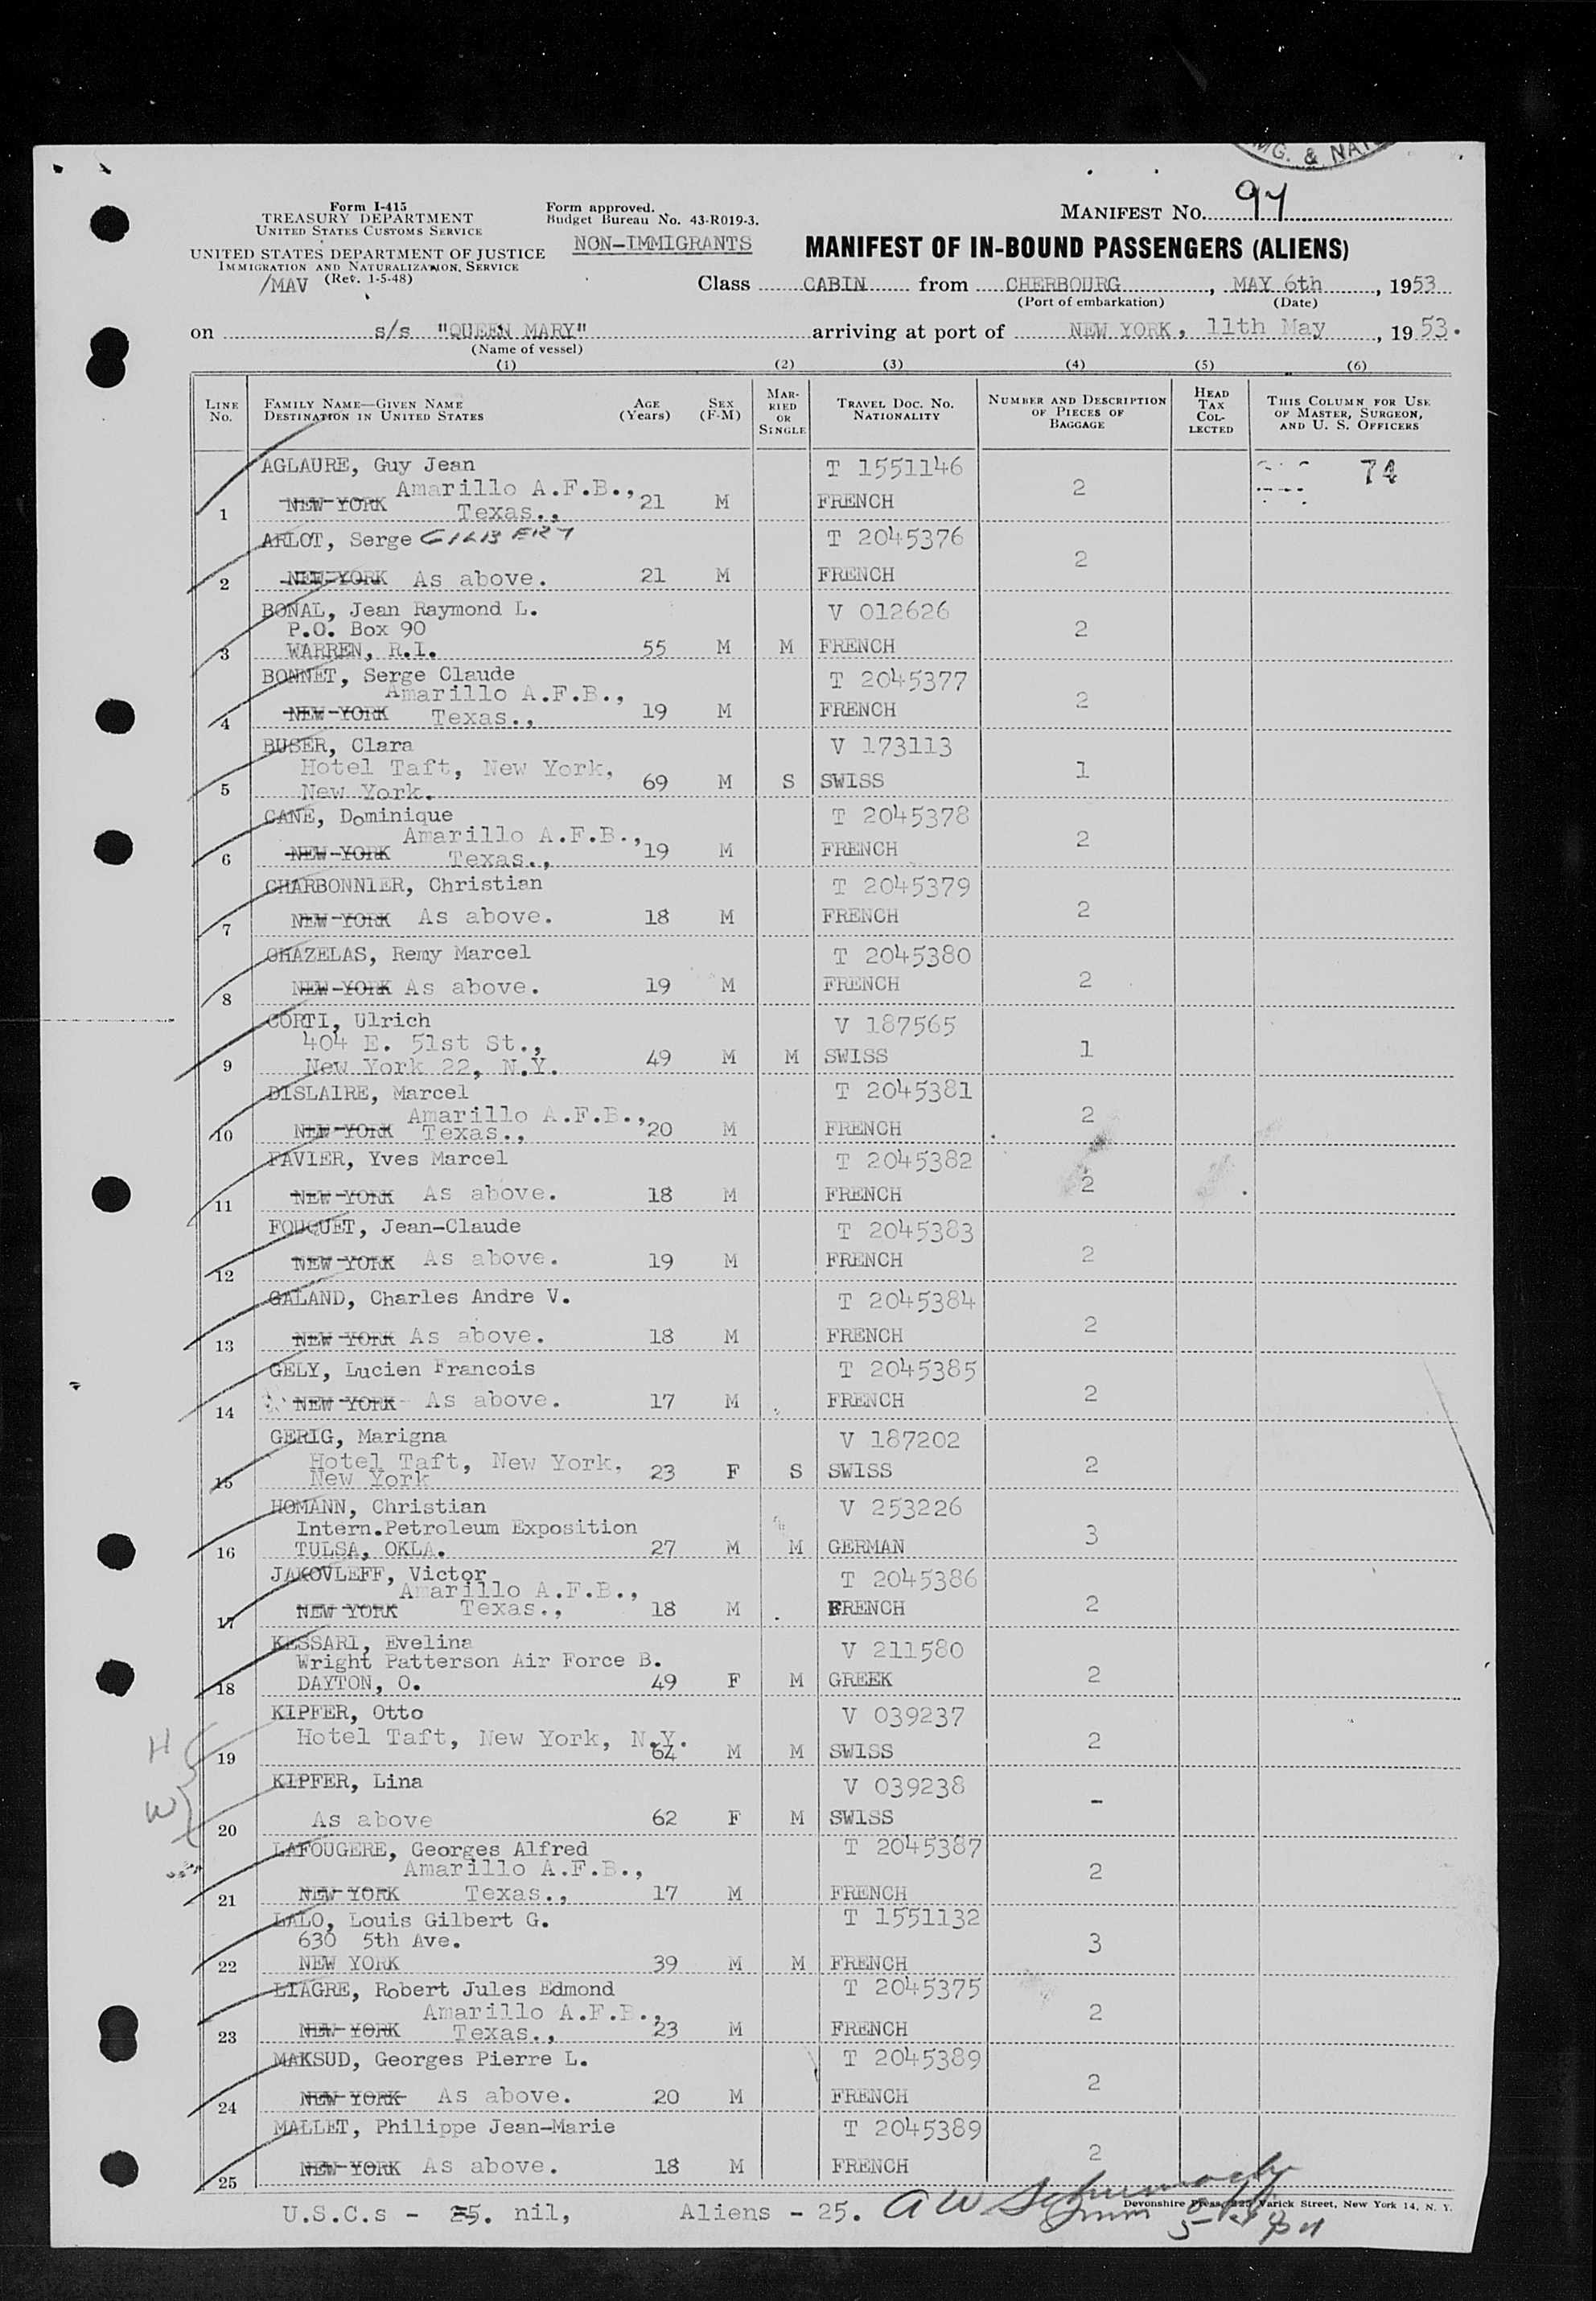 IMG. & NAT
Form I-415
TREASURY DEPARTMENT
UNITED STATES CUSTOMS SERVICE
UNITED STATES DEPARTMENT OF JUSTICE
IMMIGRATION AND NATURALIZATION SERVICE
/MAV (Rev. 1-5-48)
Form approved.
Budget Bureau No. 43-R019-3.
NON-IMMIGRANTS
MANIFEST NO. 97
MANIFEST OF IN-BOUND PASSENGERS (ALIENS)
Class CABIN from CHERBOURG, MAY 6th, 1953
(Port of embarkation) (Date)
on s/s "QUEEN MARY" arriving at port of NEW YORK, 11th May, 1953.
(Name of vessel)
(1) (2) (3) (4) (5) (6)
LINE NO. FAMILY NAME—GIVEN NAME DESTINATION IN UNITED STATES AGE (YEARS) SEX (F-M) MARRIED OR SINGLE TRAVEL DOC. NO. NATIONALITY NUMBER AND DESCRIPTION OF PIECES OF BAGGAGE HEAD TAX COLLECTED THIS COLUMN FOR USE OF MASTER, SURGEON, AND U. S. OFFICERS
AGLAURE, Guy Jean T 1551146 74
Amarillo A.F.B., 2
1 NEW YORK Texas., 21 M FRENCH
ARLOT, Serge GILBERT T 2045376 2
2 NEW YORK As above. 21 M FRENCH
BONAL, Jean Raymond L. V 012626
P.O. Box 90 2
3 WARREN, R.I. 55 M M FRENCH
BONNET, Serge Claude T 2045377
Amarillo A.F.B., 2
4 NEW YORK Texas., 19 M FRENCH
BUSER, Clara V 173113
Hotel Taft, New York, 1
5 New York. 69 M S SWISS
CANE, Dominique T 2045378
Amarillo A.F.B., 2
6 NEW YORK Texas., 19 M FRENCH
CHARBONNIER, Christian T 2045379 2
7 NEW YORK As above. 18 M FRENCH
CHAZELAS, Remy Marcel T 2045380
8 NEW YORK As above. 19 M FRENCH 2
CORTI, Ulrich V 187565
404 E. 51st St., 1
9 New York 22, N.Y. 49 M M SWISS
DISLAIRE, Marcel T 2045381
Amarillo A.F.B., 2
10 NEW YORK Texas., 20 M FRENCH
FAVIER, Yves Marcel T 2045382
11 NEW YORK As above. 18 M FRENCH 2
FOUQUET, Jean-Claude T 2045383
12 NEW YORK As above. 19 M FRENCH 2
GALAND, Charles Andre V. T 2045384
13 NEW YORK As above. 18 M FRENCH 2
GELY, Lucien Francois T 2045385
14 NEW YORK As above. 17 M FRENCH 2
GERIG, Marigna V 187202
Hotel Taft, New York, 2
15 New York 23 F S SWISS
HOMANN, Christian V 253226
Intern.Petroleum Exposition 3
16 TULSA, OKLA. 27 M M GERMAN
JAKOVLEFF, Victor T 2045386
Amarillo A.F.B., 2
17 NEW YORK Texas., 18 M FRENCH
KESSARI, Evelina V 211580
Wright Patterson Air Force B. 2
18 DAYTON, O. 49 F M GREEK
KIPFER, Otto V 039237
H Hotel Taft, New York, N.Y. 2
19 64 M M SWISS
KIPFER, Lina V 039238 -
W
20 As above 62 F M SWISS
LAFOUGERE, Georges Alfred T 2045387
Amarillo A.F.B., 2
21 NEW YORK Texas., 17 M FRENCH
LALO, Louis Gilbert G. T 1551132
630 5th Ave. 3
22 NEW YORK 39 M M FRENCH
LIAGRE, Robert Jules Edmond T 2045375
Amarillo A.F.B., 2
23 NEW YORK Texas., 23 M FRENCH
MAKSUD, Georges Pierre L. T 2045389
24 NEW YORK As above. 20 M FRENCH 2
MALLET, Philippe Jean-Marie T 2045389
25 NEW YORK As above. 18 M FRENCH 2
U.S.C.s - 25. nil, Aliens - 25.
Devonshire Press, 225 Varick Street, New York 14, N. Y.